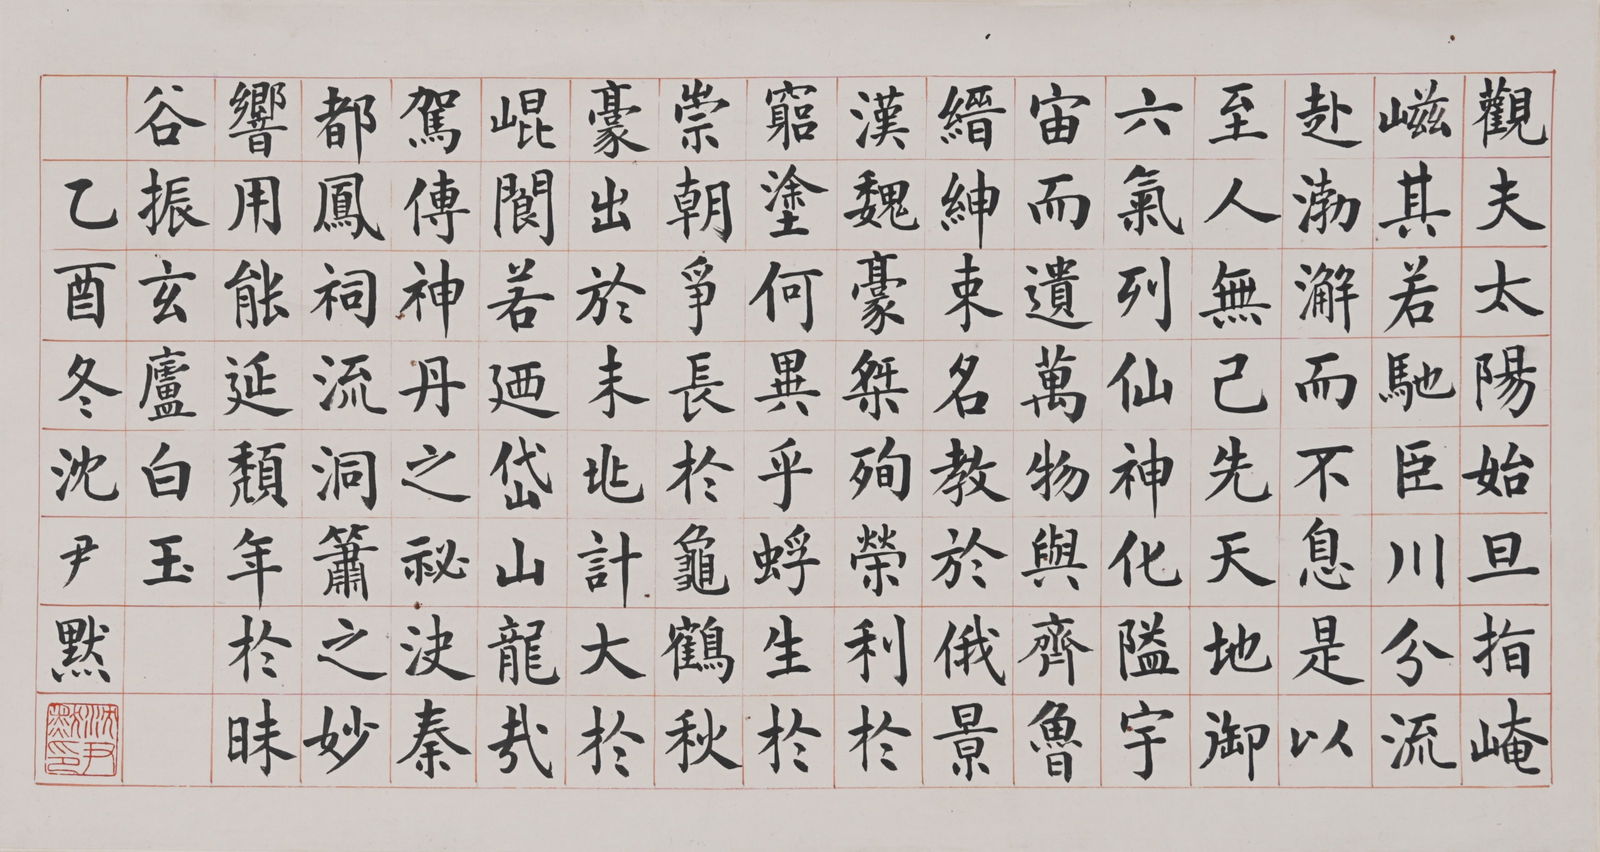 觀夫太陽始旦指崦
嵫其若馳臣川分流
赴渤澥而不息是以
至人無己先天地御
六氣列仙神化隘宇
宙而遺萬物與齊魯
縉紳束名教於俄景
漢魏豪桀殉榮利於
窮塗何異乎蜉生於
崇朝爭長於龜鶴秋
豪出於未兆計大於
崐閬若廼岱山龍炁
駕傳神丹之祕決秦
都鳳祠流洞簫之妙
響用能延頹年於昧
谷振玄廬白玉
乙酉冬沈尹默
沈尹默印